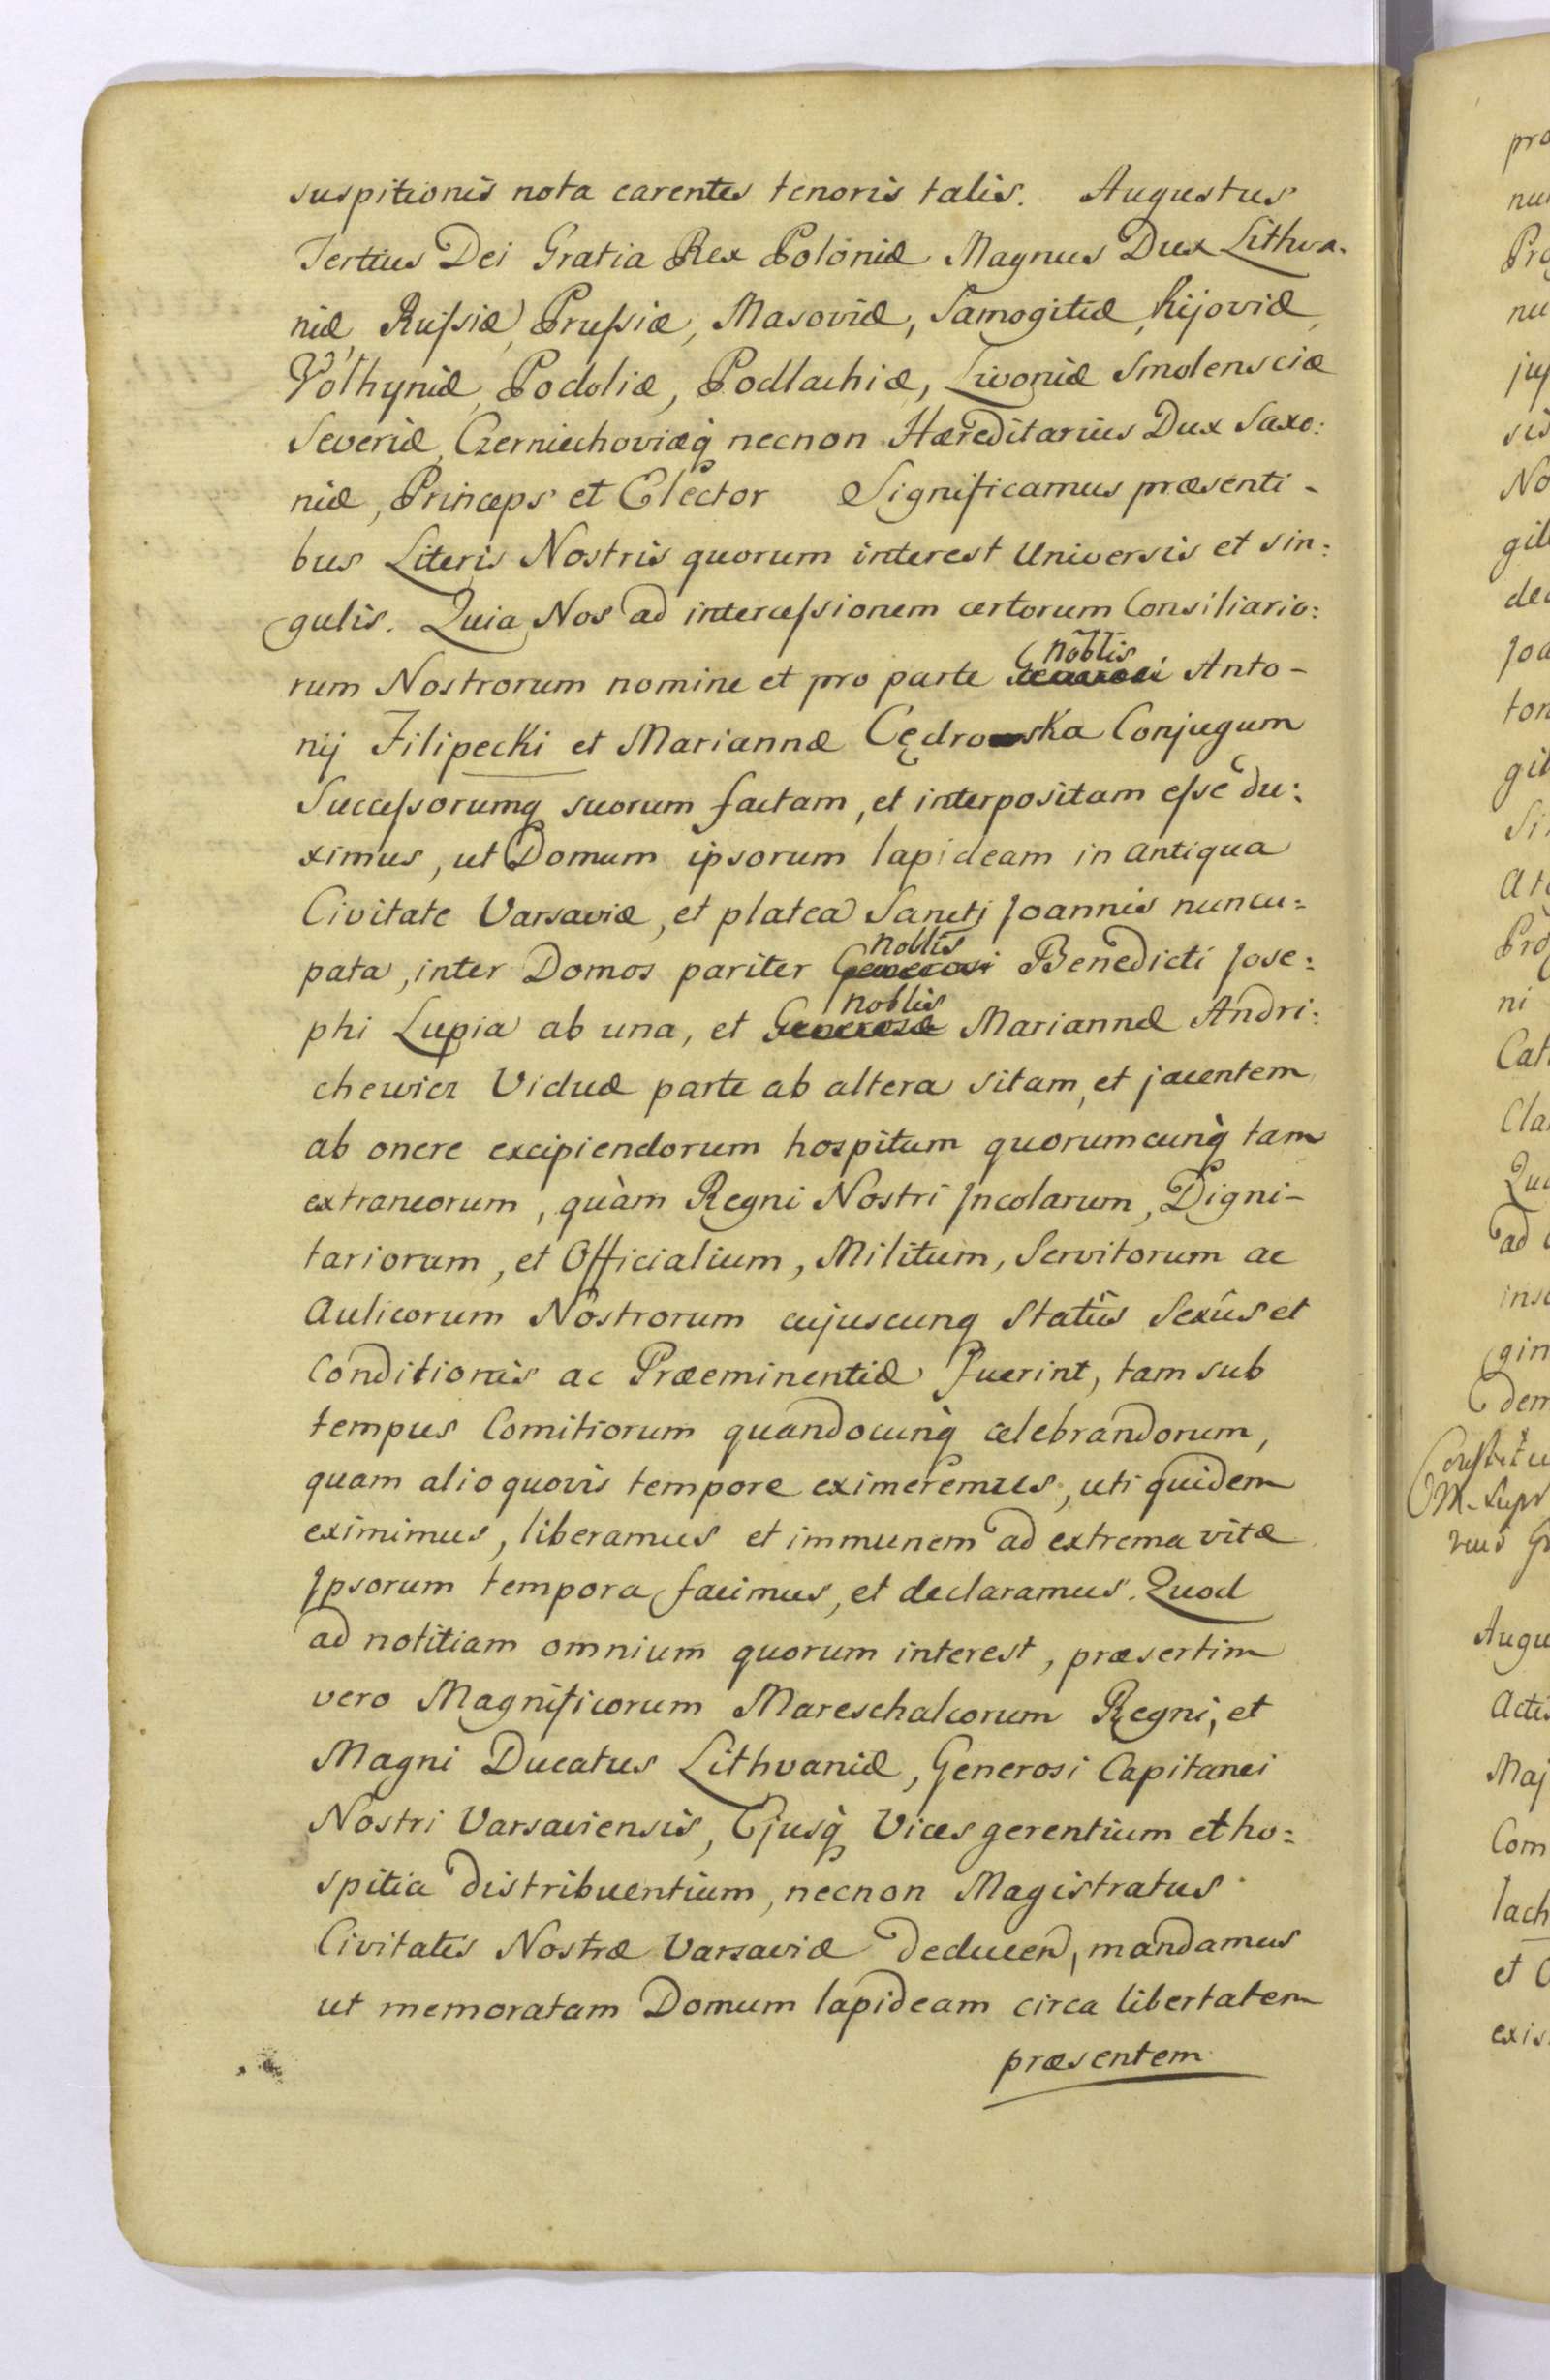 suspitionis nota carentes tenoris talis. Augustus
Tertius Dei Gratia Rex Poloniæ Magnus Dux Lithva-
niæ, Rußiæ, Prußiæ, Masoviæ, Samogitiæ, Kijoviæ,
Volhyniæ, Podoliæ, Podlachiæ, Livoniæ Smolensciæ
Severiæ, Czerniechoviæq̀ necnon Hæreditarius Dux Saxo:
niæ, Princeps et Elector Significamus præsenti-
bus Literis Nostris quorum interest Universis et sin:
gulis. Quia Nos ad interceßionem certorum Consiliario:
noblis
rum Nostrorum nomine et pro parte Generosi Anto-
nij Filipecki et Mariannæ Cędrowska Conjugum
Succeßorumq suorum factam, et interpositam eße du:
ximus, ut Domum ipsorum lapideam in antiqua
Civitate Varsaviæ, et platea Sancti Joannis nuncu:
noblis
pata, inter Domos pariter Generosi Benedicti Jose:
noblis
phi Lupia ab una, et Generosæ Mariannæ Andri:
chewicz Viduæ parte ab altera sitam, et jacentem,
ab onere excipiendorum hospitum quorumcunq̀ tam
extraneorum, quàm Regni Nostri Incolarum, Digni-
tariorum, et Officialium, Militum, Servitorum ac
Aulicorum Nostrorum cujuscunq Statûs Sexûs et
Conditionis ac Præeminentiæ Fuerint, tam sub
tempus Comitiorum quandocunq̀ celebrandorum,
quam alio quovis tempore eximeremus, uti quidem
eximimus, liberamus et immunem ad extrema vitæ
Ipsorum tempora facimus, et declaramus. Quod
ad notitiam omnium quorum interest, præsertim
vero Magnificorum Mareschalcorum Regni, et
Magni Ducatus Lithvaniæ, Generosi Capitanei
Nostri Varsaviensis, Ejusq̀ Vices gerentium et ho:
spitia distribuentium, necnon Magistratus
Civitatis Nostræ Varsaviæ deducen, mandamus
ut memoratam Domum lapideam circa libertatem
præsentem